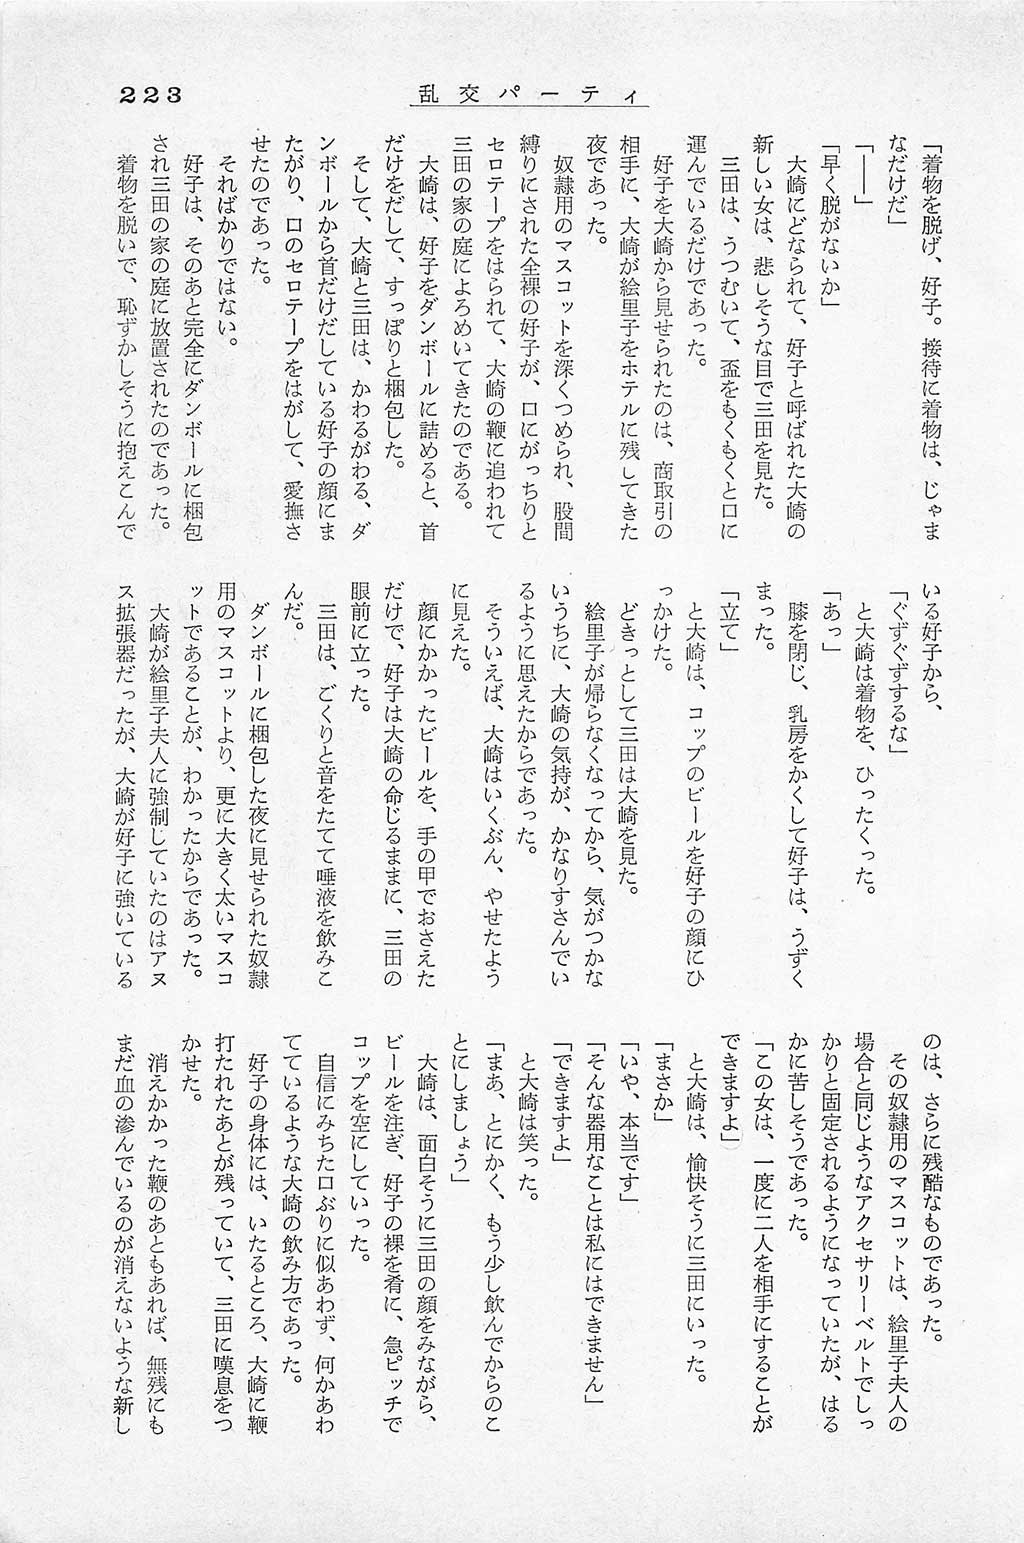 223
乱交パーティ
「着物を脱げ、好子。接待に着物は、じゃま
なだけだ」
「――」
「早く脱がないか」
大崎にどなられて、好子と呼ばれた大崎の
新しい女は、悲しそうな目で三田を見た。
三田は、うつむいて、盃をもくもくと口に
運んでいるだけであった。
好子を大崎から見せられたのは、商取引の
相手に、大崎が絵里子をホテルに残してきた
夜であった。
奴隷用のマスコットを深くつめられ、股間
縛りにされた全裸の好子が、口にがっちりと
セロテープをはられて、大崎の鞭に追われて
三田の家の庭によろめいてきたのである。
大崎は、好子をダンボールに詰めると、首
だけをだして、すっぽりと梱包した。
そして、大崎と三田は、かわるがわる、ダ
ンボールから首だけだしている好子の顔にま
たがり、口のセロテープをはがして、愛撫さ
せたのであった。
そればかりではない。
好子は、そのあと完全にダンボールに梱包
され三田の家の庭に放置されたのであった。
着物を脱いで、恥ずかしそうに抱えこんで
いる好子から、
「ぐずぐずするな」
と大崎は着物を、ひったくった。
「あっ」
膝を閉じ、乳房をかくして好子は、うずく
まった。
「立て」
と大崎は、コップのビールを好子の顔にひ
っかけた。
どきっとして三田は大崎を見た。
絵里子が帰らなくなってから、気がつかな
いうちに、大崎の気持が、かなりすさんでい
るように思えたからであった。
そういえば、大崎はいくぶん、やせたよう
に見えた。
顔にかかったビールを、手の甲でおさえた
だけで、好子は大崎の命じるままに、三田の
眼前に立った。
三田は、ごくりと音をたてて唾液を飲みこ
んだ。
ダンボールに梱包した夜に見せられた奴隷
用のマスコットより、更に大きく太いマスコ
ットであることが、わかったからであった。
大崎が絵里子夫人に強制していたのはアヌ
ス拡張器だったが、大崎が好子に強いている
のは、さらに残酷なものであった。
その奴隷用のマスコットは、絵里子夫人の
場合と同じようなアクセサリーベルトでしっ
かりと固定されるようになっていたが、はる
かに苦しそうであった。
「この女は、一度に二人を相手にすることが
できますよ」
と大崎は、愉快そうに三田にいった。
「まさか」
「いや、本当です」
「そんな器用なことは私にはできません」
「できますよ」
と大崎は笑った。
「まあ、とにかく、もう少し飲んでからのこ
とにしましょう」
大崎は、面白そうに三田の顔をみながら、
ビールを注ぎ、好子の裸を肴に、急ピッチで
コップを空にしていった。
自信にみちた口ぶりに似あわず、何かあわ
てているような大崎の飲み方であった。
好子の身体には、いたるところ、大崎に鞭
打たれたあとが残っていて、三田に嘆息をつ
かせた。
消えかかった鞭のあともあれば、無残にも
まだ血の滲んでいるのが消えないような新し